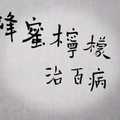 蜂蜜檸檬
治百病